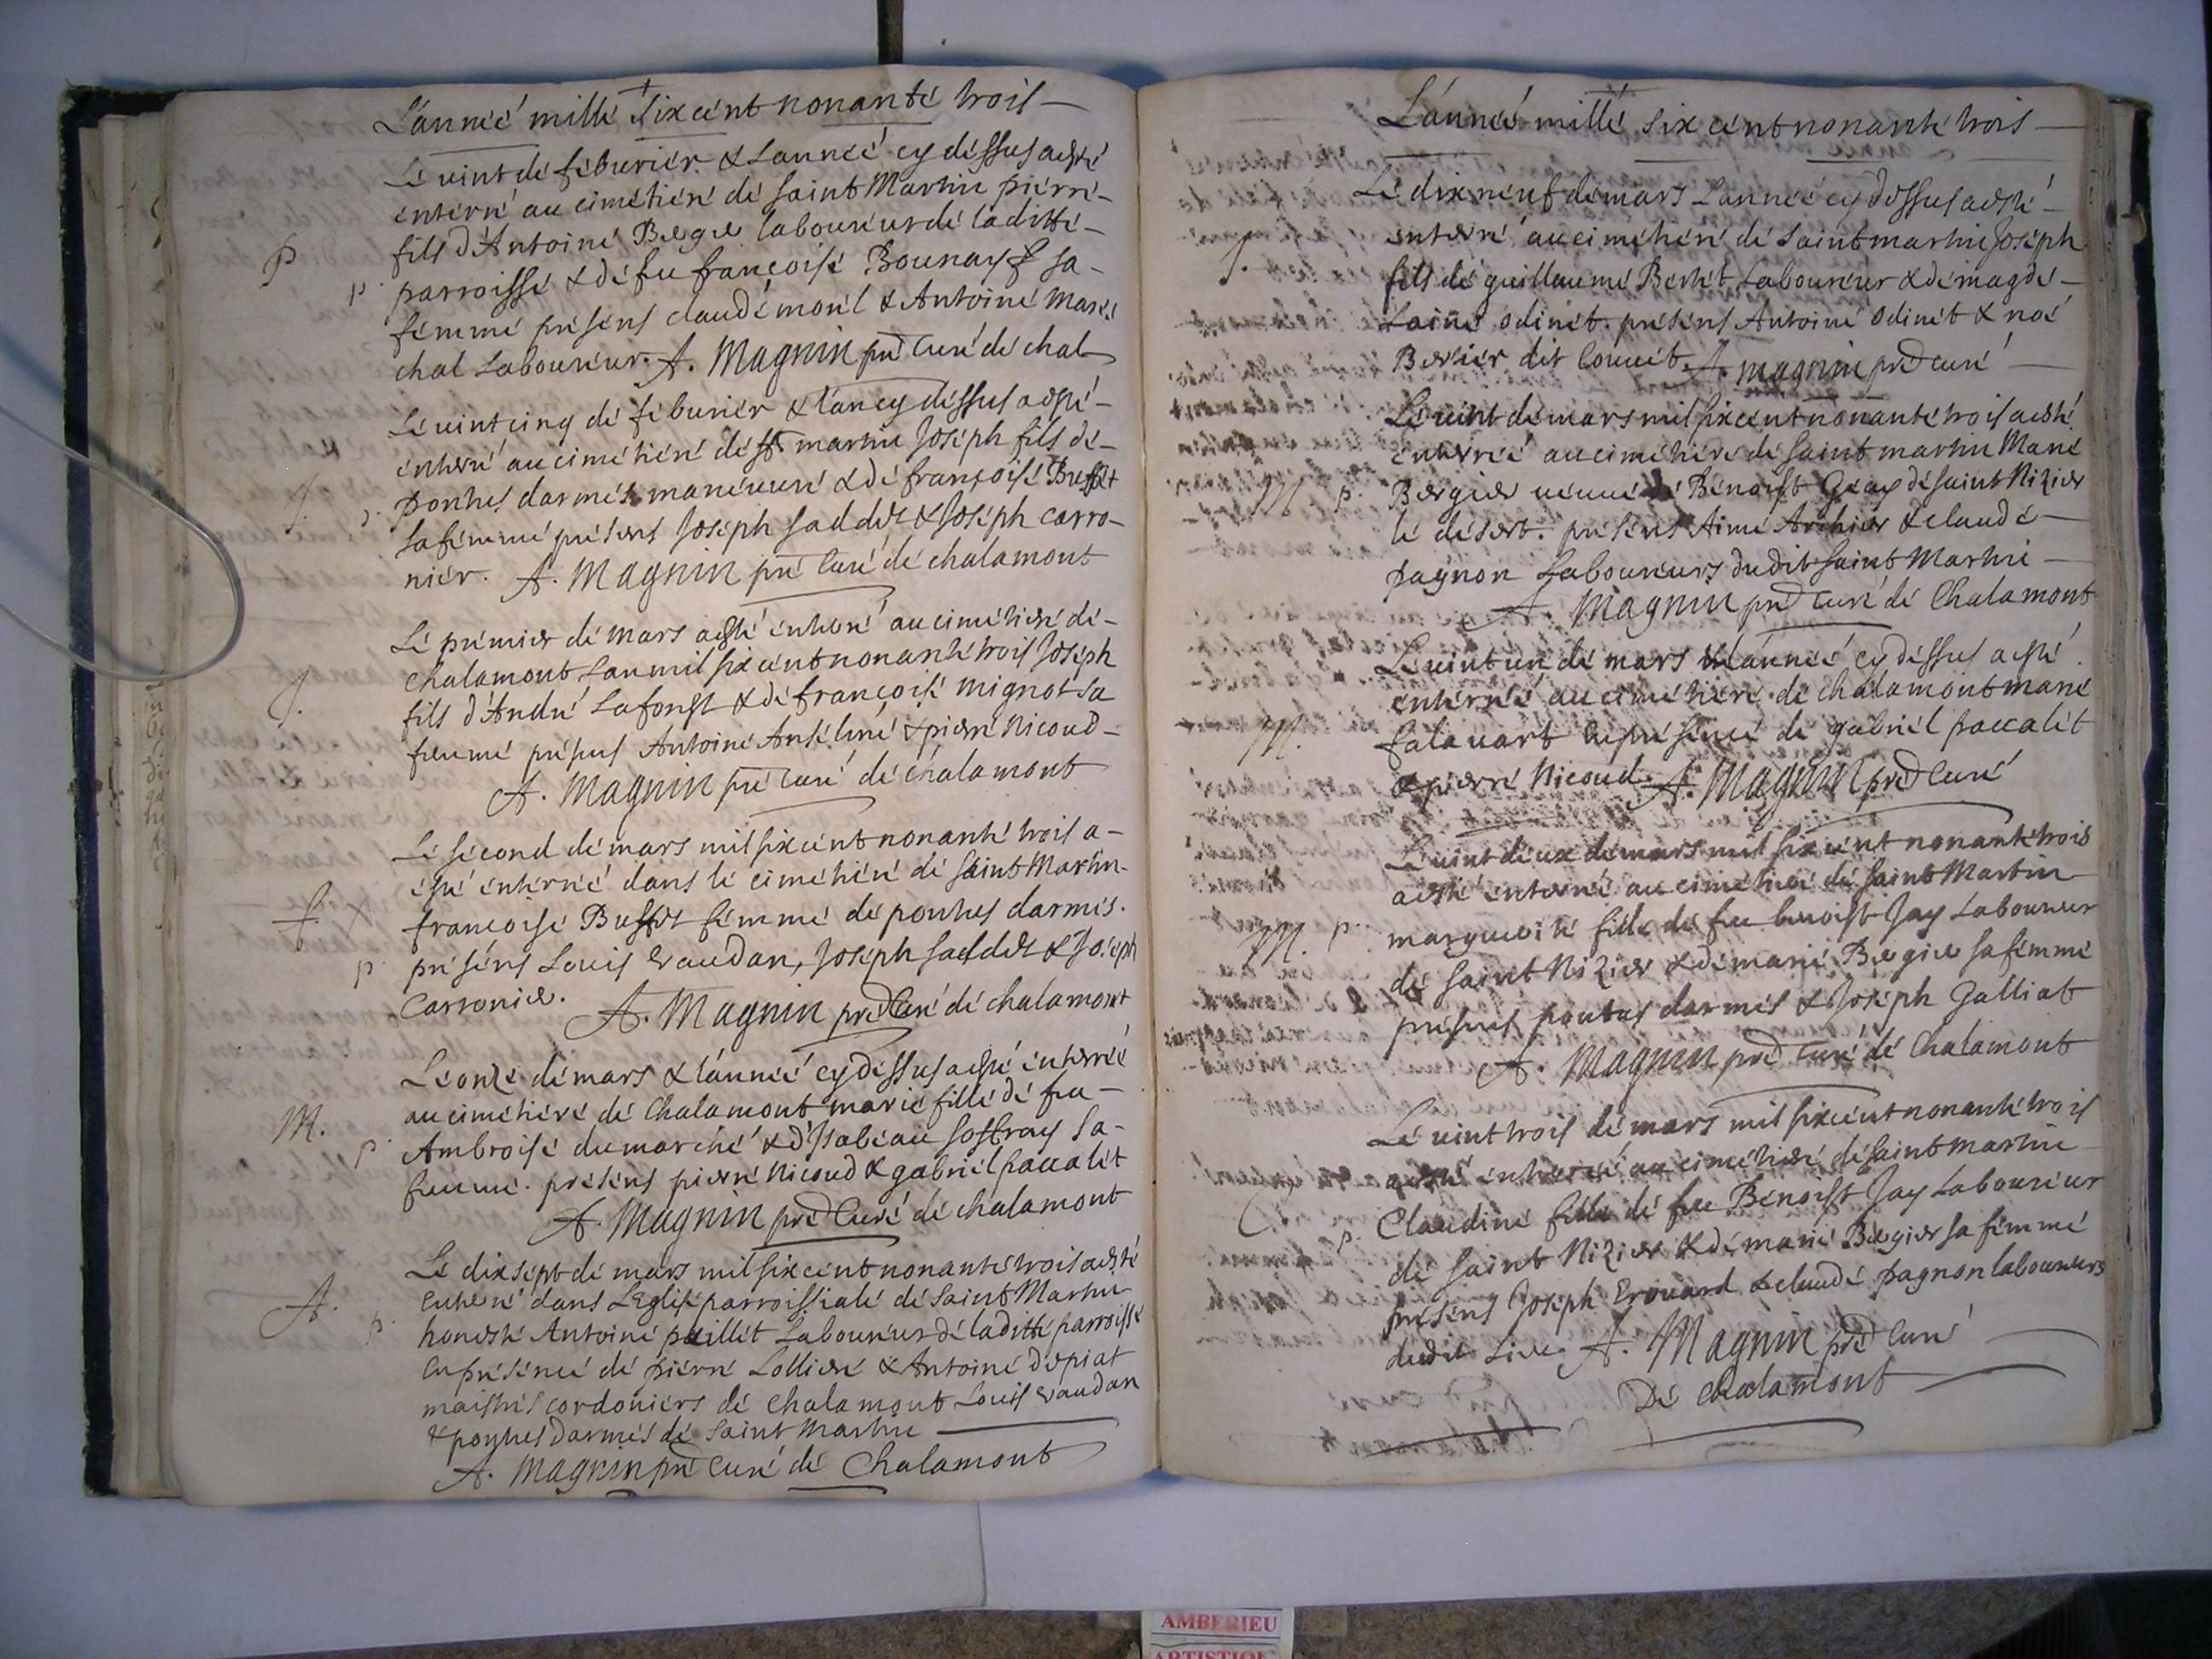 L'année mille six cent nonante trois
Le vint de feburier & L'année cy dessus a esté
enterré au cimetiere de saint Martin pierre
fils d'Antoine Bergier laboureur de laditte
P
p. parroisse & de fu françoise Bounay sa
femme présens claude morel & Antoine Mare
chal Laboureur. A. Magnin pre Curé de chal
Le vintcinq de feburier & l'an cy dessus a esté
enterré au cimetiere de st martin Joseph fils de
J. ponthus darmes manevure & de françoise Buffet
sa femme présens Joseph saddet & Joseph carro-
nier. A. Magnin pre Curé de chalamont
Le premier de mars a esté enterré au cimetiere de
chalamont L'an mil six cent nonante trois Joseph
J.
fils d'André Lafonst & de françoise mignot sa
femme présens Antoine Anselme & pierre Nicoud
A. Magnin pre Curé de chalamont
Le second de mars mil six cent nonante trois a
esté enterrée dans le cimetiere de saint Martin
f. françoise Buffet femme de ponthus darmes.
p. présens Louis Evaudan, Joseph saddet & Joseph
Carronier. A. Magnin pre Curé de chalamont
Le onze de mars & l'année cy dessus a esté enterrée
au cimetiere de Chalamont marie fille de fu
M.
p. Ambroise dumarché & d'Isabeau soffray sa
femme. présens pierre Nicoud & gabriel paccalet
A. Magnin pre Curé de chalamont
Le dix sept de mars mil six cent nonante trois a esté
enterré dans L'Eglise parroissiale de saint Martin
A. p. honeste Antoine paillet Laboureur de laditte parroisse
en présence de pierre Lolliere & Antoine depiat
maistres cordoniers de chalamont Louis Evaudan
& ponthus darmes de saint Martin
A. Magnin pre Curé de Chalamont
L'année mille six cent nonante trois
Le dix neuf de mars L'année cy dessus a esté
J. enterré au cimetiere de saint martin Joseph
fils de guillaume Berthet Laboureur & de magde-
Laine odinet. présens Antoine odinet & noé
Berthier dit Couvet. A. magnin pre curé
Le vint de mars mil six cent nonante trois a esté
enterrée au cimetiere de saint martin Marie
M p. Bergier veuve de Benoist Geay de saint Nizier
le désert. présens Aimé Archier & claude
pagnon Laboureurs dudit saint Martin
A. Magnin pre curé de Chalamont
Le vint un de mars & l'année cy dessus a esté
enterrée au cimetiere de chalamont marie
M. salavart en présence de gabriel paccalet
& pierre Nicoud. A. Magnin pre Curé
Le vint deux de mars mil six cent nonante trois
a esté enterrée au cimetiere de saint Martin
M. p. marguerite fille de fu benoist Jay Laboureur
de saint Nizier & de marie Bergier sa femme
présens pontus darmes & Joseph Galliat
A. Magnin pre Curé de Chalamont
Le vint trois de mars mil six cent nonante trois
a esté enterrée au cimetiere de saint martin
C p. Claudine fille de fu Benoist Jay Laboureur
de saint Nizier & de marie Bergier sa femme
présens Joseph Erouard & claude pagnon laboureurs
dudit Lieu A. Magnin pre Curé
De chalamont
AMBERIEU
ARTISTIQUE